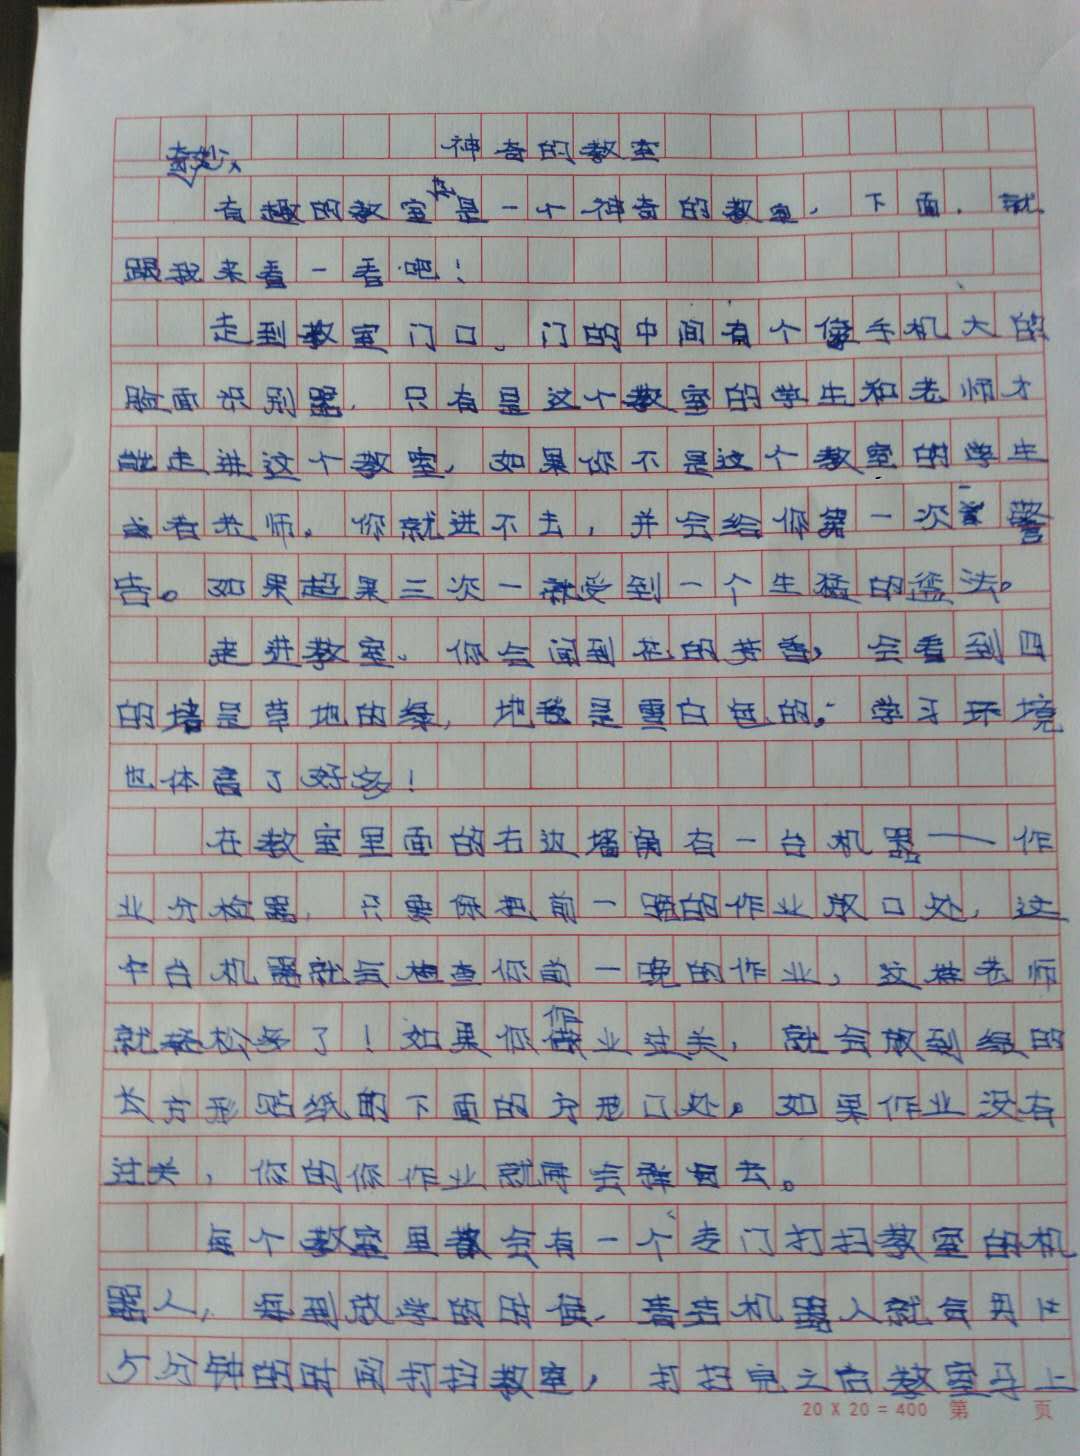 神奇的教室
奇妙、
有趣的教室是一个神奇的教室，下面，就
跟我来看一看吧！
走到教室门口。门的中间有个像手机大的
脸面识别器，只有是这个教室的学生和老师才
能走进这个教室，如果你不是这个教室的学生
或者老师。你就进不去，并会给你第一次警
告。如果超果三次一就受到一个生猛的
走进教室、你会闻到花的芳香，会看到四
的墙是草地的绿，地是雪白色的，学习环境
也体高了好多！
在教室里面的右边墙角有一台机器——作
业分检器，只要你把前一的作业放口处，这
台机器就会检查你前一晚的作业，这样老师
就轻松多了！如果你作业过关，就会放到绿的
长方形贴纸的下面的方形口处。如果作业没有
过关，你的你作业就得会去。
每个教室里都会有一个专门打扫教室的机
器人，每到放学的时候，清洁机器人就会用
5分钟的时间打扫教室，打扫完之后教室马上
20 X 20 = 400 第 页